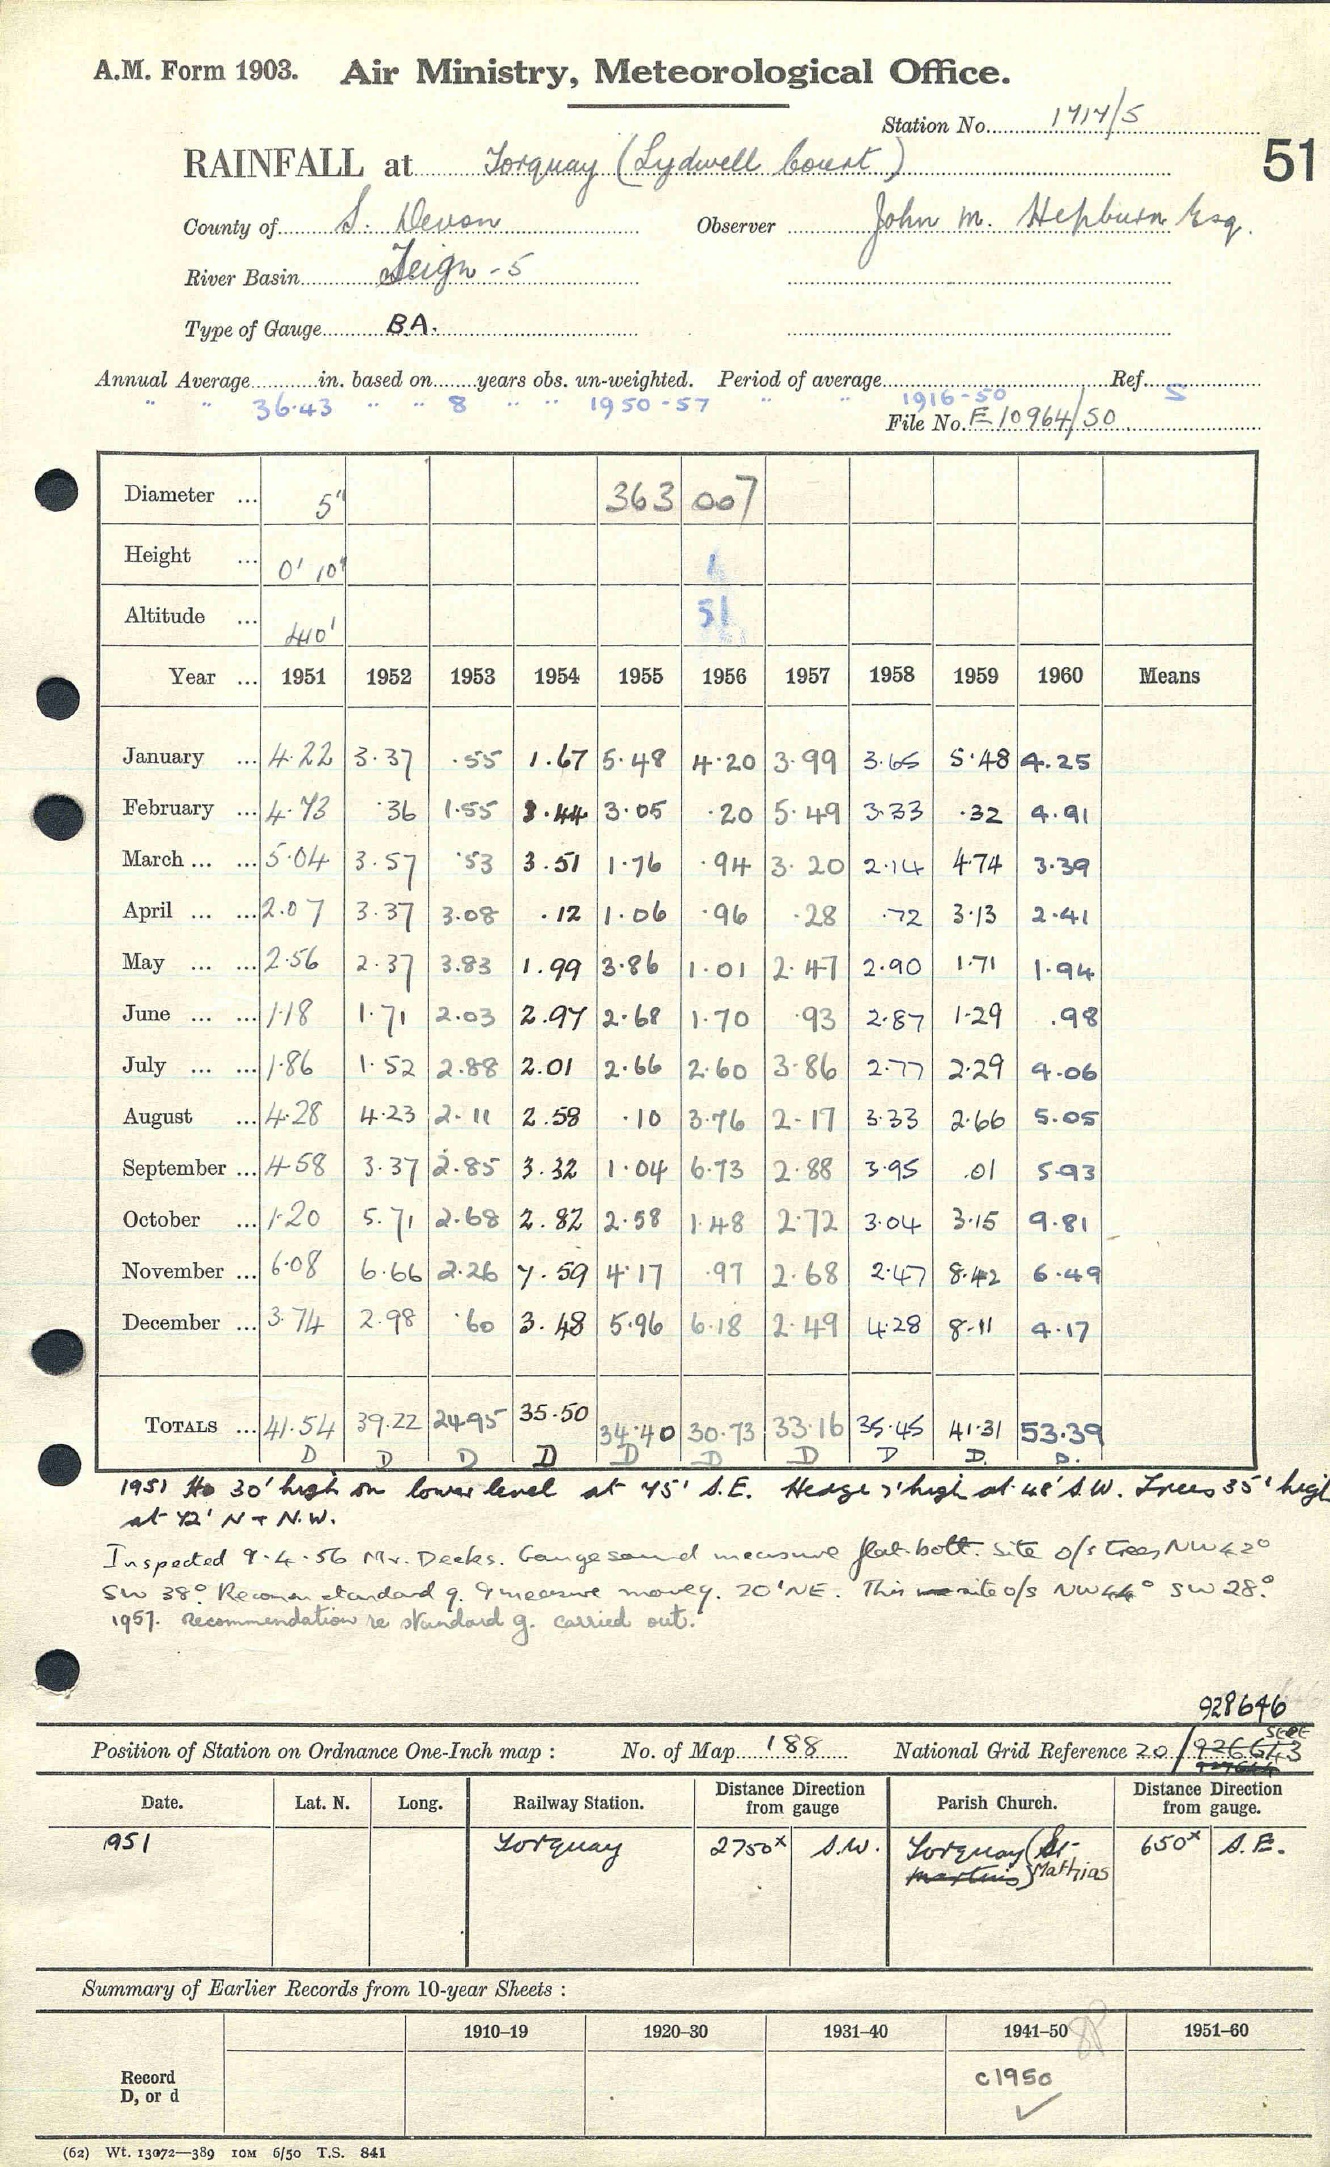 A.M. Form 1903. Air Ministry, Meteorological Office.
Station No. 1414/5
51
RAINFALL at Torquay (Lydwell Court)
County of S. Devon Observer John M. Hepburn Esq.
River Basin Teign - 5
Type of Gauge B.A.
Annual Average in. based on years obs. un-weighted. Period of average Ref.
" " 36.43 " " 8 " " 1950-57 " " 1916-50 S
File No. E10964/50
Diameter ... 5" 363 007
Height ... 0' 10" 1
Altitude ... 410' 51
Year ... 1951 1952 1953 1954 1955 1956 1957 1958 1959 1960 Means
January ... 4.22 3.37 .55 1.67 5.48 4.20 3.99 3.65 5.48 4.25
February ... 4.73 .36 1.55 3.44 3.05 .20 5.49 3.33 .32 4.91
March ... ... 5.04 3.57 .53 3.51 1.76 .94 3.20 2.14 4.74 3.39
April ... ... 2.07 3.37 3.08 .12 1.06 .96 .28 .72 3.13 2.41
May ... ... 2.56 2.37 3.83 1.99 3.86 1.01 2.47 2.90 1.71 1.94
June ... ... 1.18 1.71 2.03 2.97 2.68 1.70 .93 2.87 1.29 .98
July ... ... 1.86 1.52 2.88 2.01 2.66 2.60 3.86 2.77 2.29 4.06
August ... 4.28 4.23 2.11 2.58 .10 3.76 2.17 3.33 2.66 5.05
September ... 4.58 3.37 2.85 3.32 1.04 6.73 2.88 3.95 .01 5.93
October ... 1.20 5.71 2.68 2.82 2.58 1.48 2.72 3.04 3.15 9.81
November ... 6.08 6.66 2.26 7.59 4.17 .97 2.68 2.47 8.42 6.49
December ... 3.74 2.98 .60 3.48 5.96 6.18 2.49 4.28 8.11 4.17
TOTALS ... 41.54 39.22 24.95 35.50 34.40 30.73 33.16 35.45 41.31 53.39
D D D D D D D D D. D.
1951 Ho 30' high on lower level at 75' S.E. Hedge 7' high at 48' S.W. Trees 35' high
at 72' N + N.W.
Inspected 9.4.56 Mr. Deeks. Gauge sound measure flat bott. Site o/s trees NW 42°
SW 38°. Recomm standard g. & measure moved. 20' NE. This site o/s NW 44° SW 28°.
1957. Recommendation re standard g. carried out.
928646
SEPE
Position of Station on Ordnance One-Inch map : No. of Map 188 National Grid Reference 20/926643
Date. Lat. N. Long. Railway Station. Distance from gauge Direction Parish Church. Distance from gauge. Direction
1951 Torquay 2750x S.W. Torquay (St- Martins) Mathias 650x S.E.
Summary of Earlier Records from 10-year Sheets :
1910–19 1920–30 1931–40 1941–50 1951–60
Record
D, or d c1950
(62) Wt. 13072—389 10M 6/50 T.S. 841